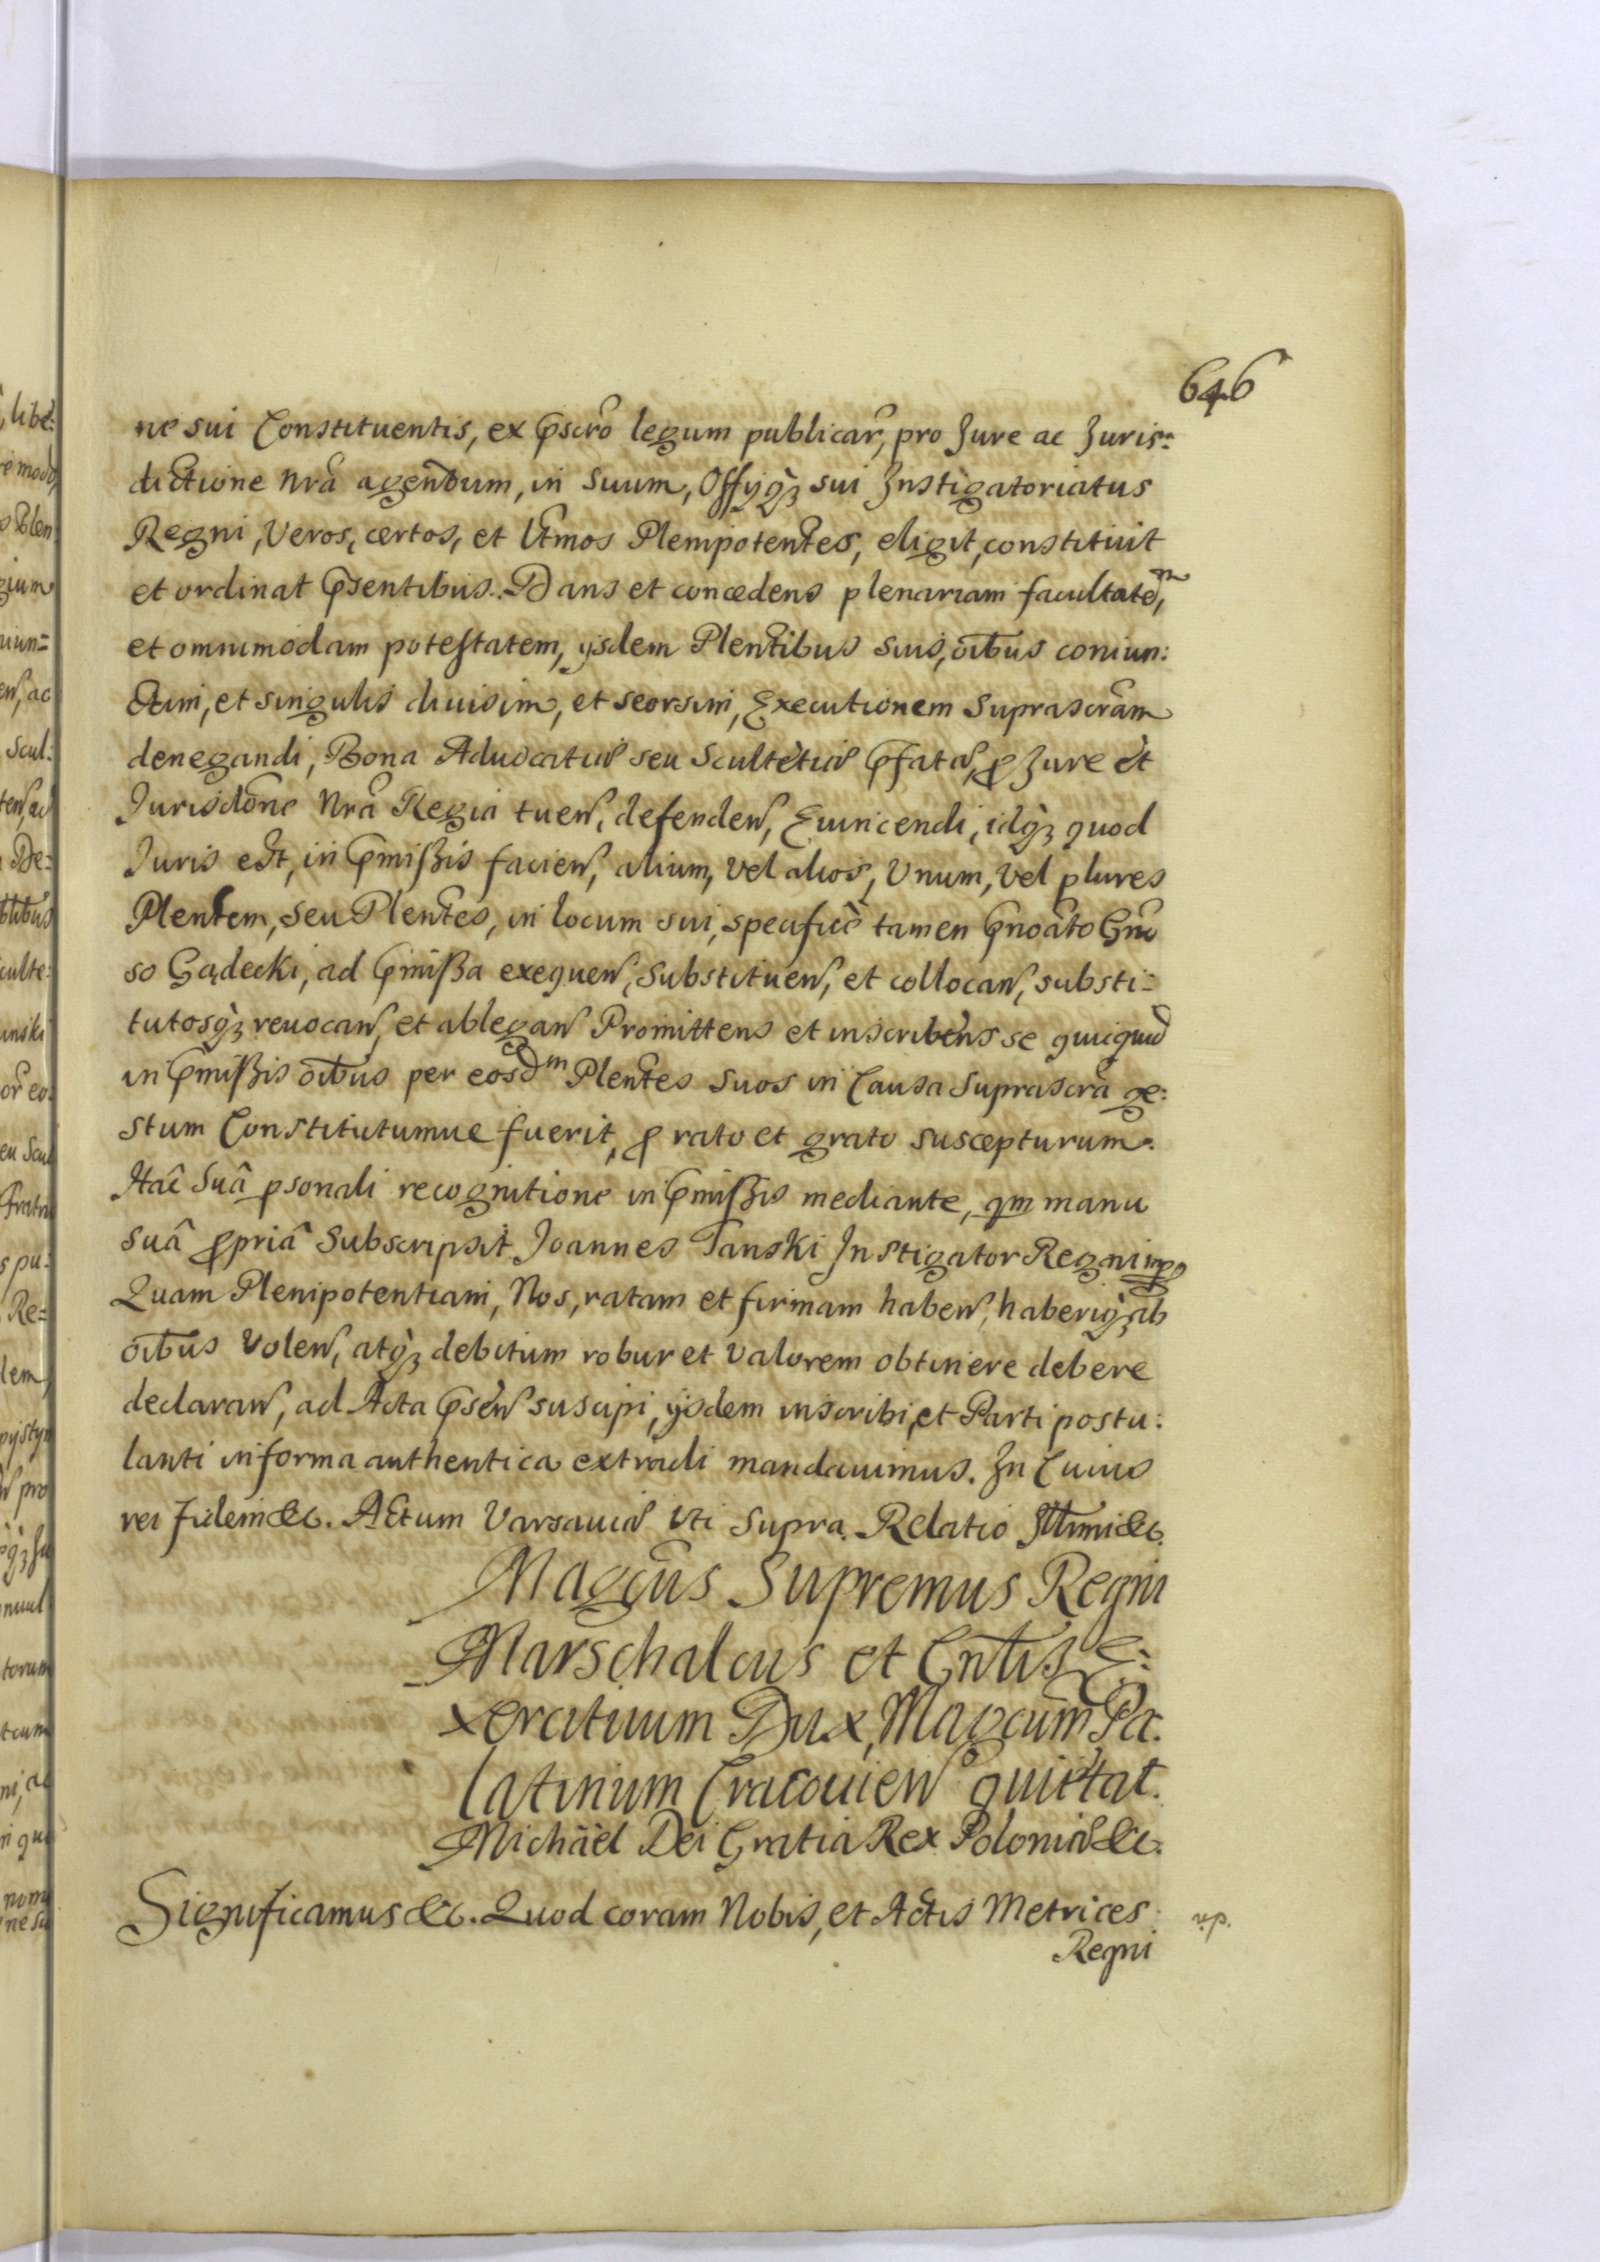 646
ne sui Constituentis, ex p̃scrõ legum publicar̃, pro Jure ac Juris:
dictione Nr̃a agendum, in Suum, Offÿq̀ sui Instigatoriatus
Regni, Veros, certos, et Ltĩmos Plenipotentes, eligit, constituit
et ordinat p̃sentibus. Dans et concedens plenariam facultatem,
et omnimodam potestatem, ÿsdem Plen̄tibus suis, oĩbus coniun:
ctim, et singulis diuisim, et seorsim, Executionem Suprascr̃am
denegandi, Bona Aduocatiæ seu Scultetiæ p̃fatæ, p̱ Jure et
Jurisdõne Nr̃a Regia tuen̄, defenden̄, Euincendi, idq̀ quod
Juris est, in p̃mißis facien̄, alium, vel alios, Unum, vel plures
Plen̄tem, seu Plen̄tes, in locum sui, specificè tamen p̃noãto Gñõ
so Gądecki, ad p̃mißa exequen̄, Substituen̄, et collocan̄, substi:
tutosq̀ reuocan̄, et ablegan̄ Promittens et inscribens se quiquid
in p̃mißis oĩbus per eosdm Plen̄tes suos in Causa Suprascr̃a ge:
stum Constitutumue fuerit, p̱ rato et grato suscepturum.
Hâc Suâ psonali recognitione in p̃mißis mediante, qm manu
suâ p̱priâ Subscripsit Joannes Tanski Instigator Regni mp
Quam Plenipotentiam, Nos, ratam et firmam haben̄, haberiq̀ ab
oĩbus volen̄, atq̀ debitum robur et valorem obtinere debere
declaran̄, ad Acta p̃sen̄ suscipi, ÿsdem inscribi, et Parti postu:
lanti in forma authentica extradi mandauimus. In Cuius
rei fidem &c. Actum Varsauiæ Uti Supra. Relatio Illt̃mi &c.
Magcũs Supremus Regni
Marschalcus et Gn̄lis E:
xercituum Dux, Magcũm Pa:
latinum Cracouien̄ quittat.
Michäel Dei Gratia Rex Poloniæ &c.
Significamus &c. Quod coram Nobis, et Actis Metrices
Regni